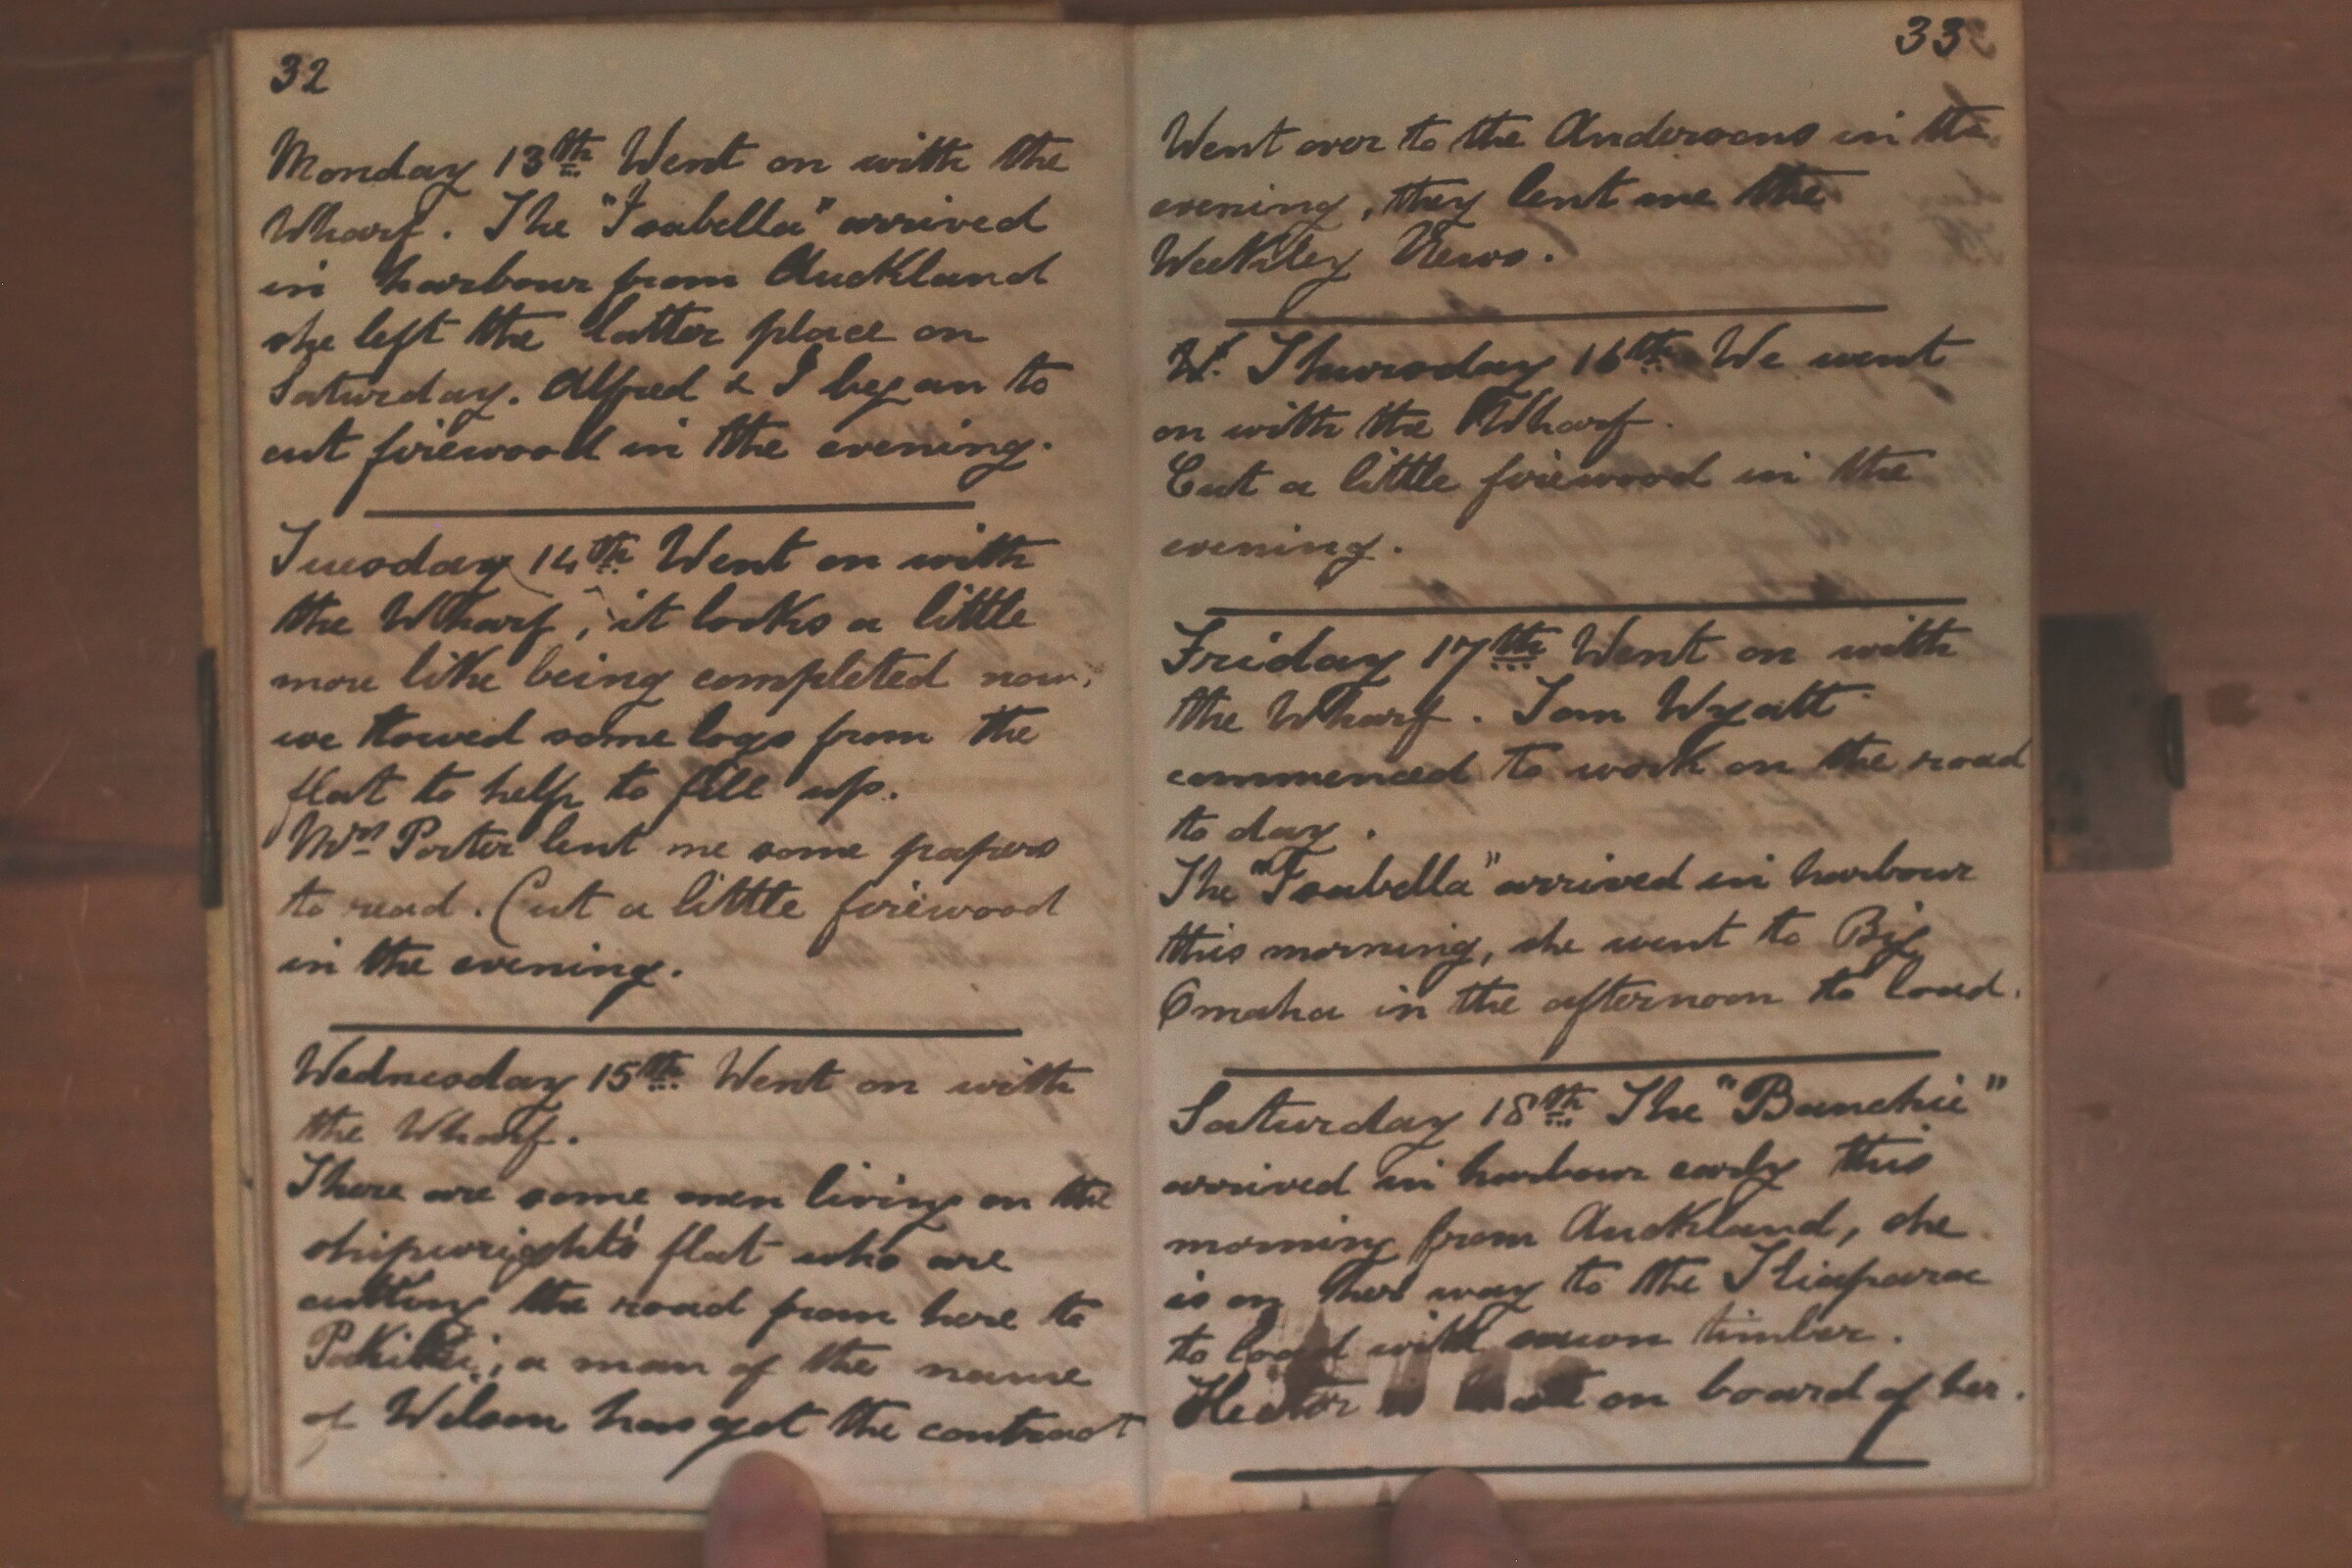 32
Monday 13th Went on with the
Wharf. The "Isabella" arrived
in harbour from Auckland
she left the latter place on
Saturday. Alfred & I began to
cut firewood in the evening.
Tuesday 14th Went on with
the Wharf, it looks a little
more like being completed now,
we towed some logs from the
flat to help to fill up.
Mrs Porter lent me some papers
to read. Cut a little firewood
in the evening.
Wednesday 15th Went on with
the Wharf.
There are some men living on the
shipwright's flat who are
cutting the road from here to
Pakiri, a man of the name
of Wilson has got the contract
33
Went over to the Andersons in the
evening, they lent me the
Weekley News.
Thursday 16th We went
on with the Wharf.
Cut a little firewood in the
evening.
Friday 17th Went on with
the Wharf. Tom Wyatt
commenced to work on the road
to day.
The "Isabella" arrived in harbour
this morning, she went to Big
Omaha in the afternoon to load.
Saturday 18th The "Banchie"
arrived in harbour early this
morning from Auckland, she
is on her way to the Kiapara
to load with sawn timber.
Hector is on board of her.